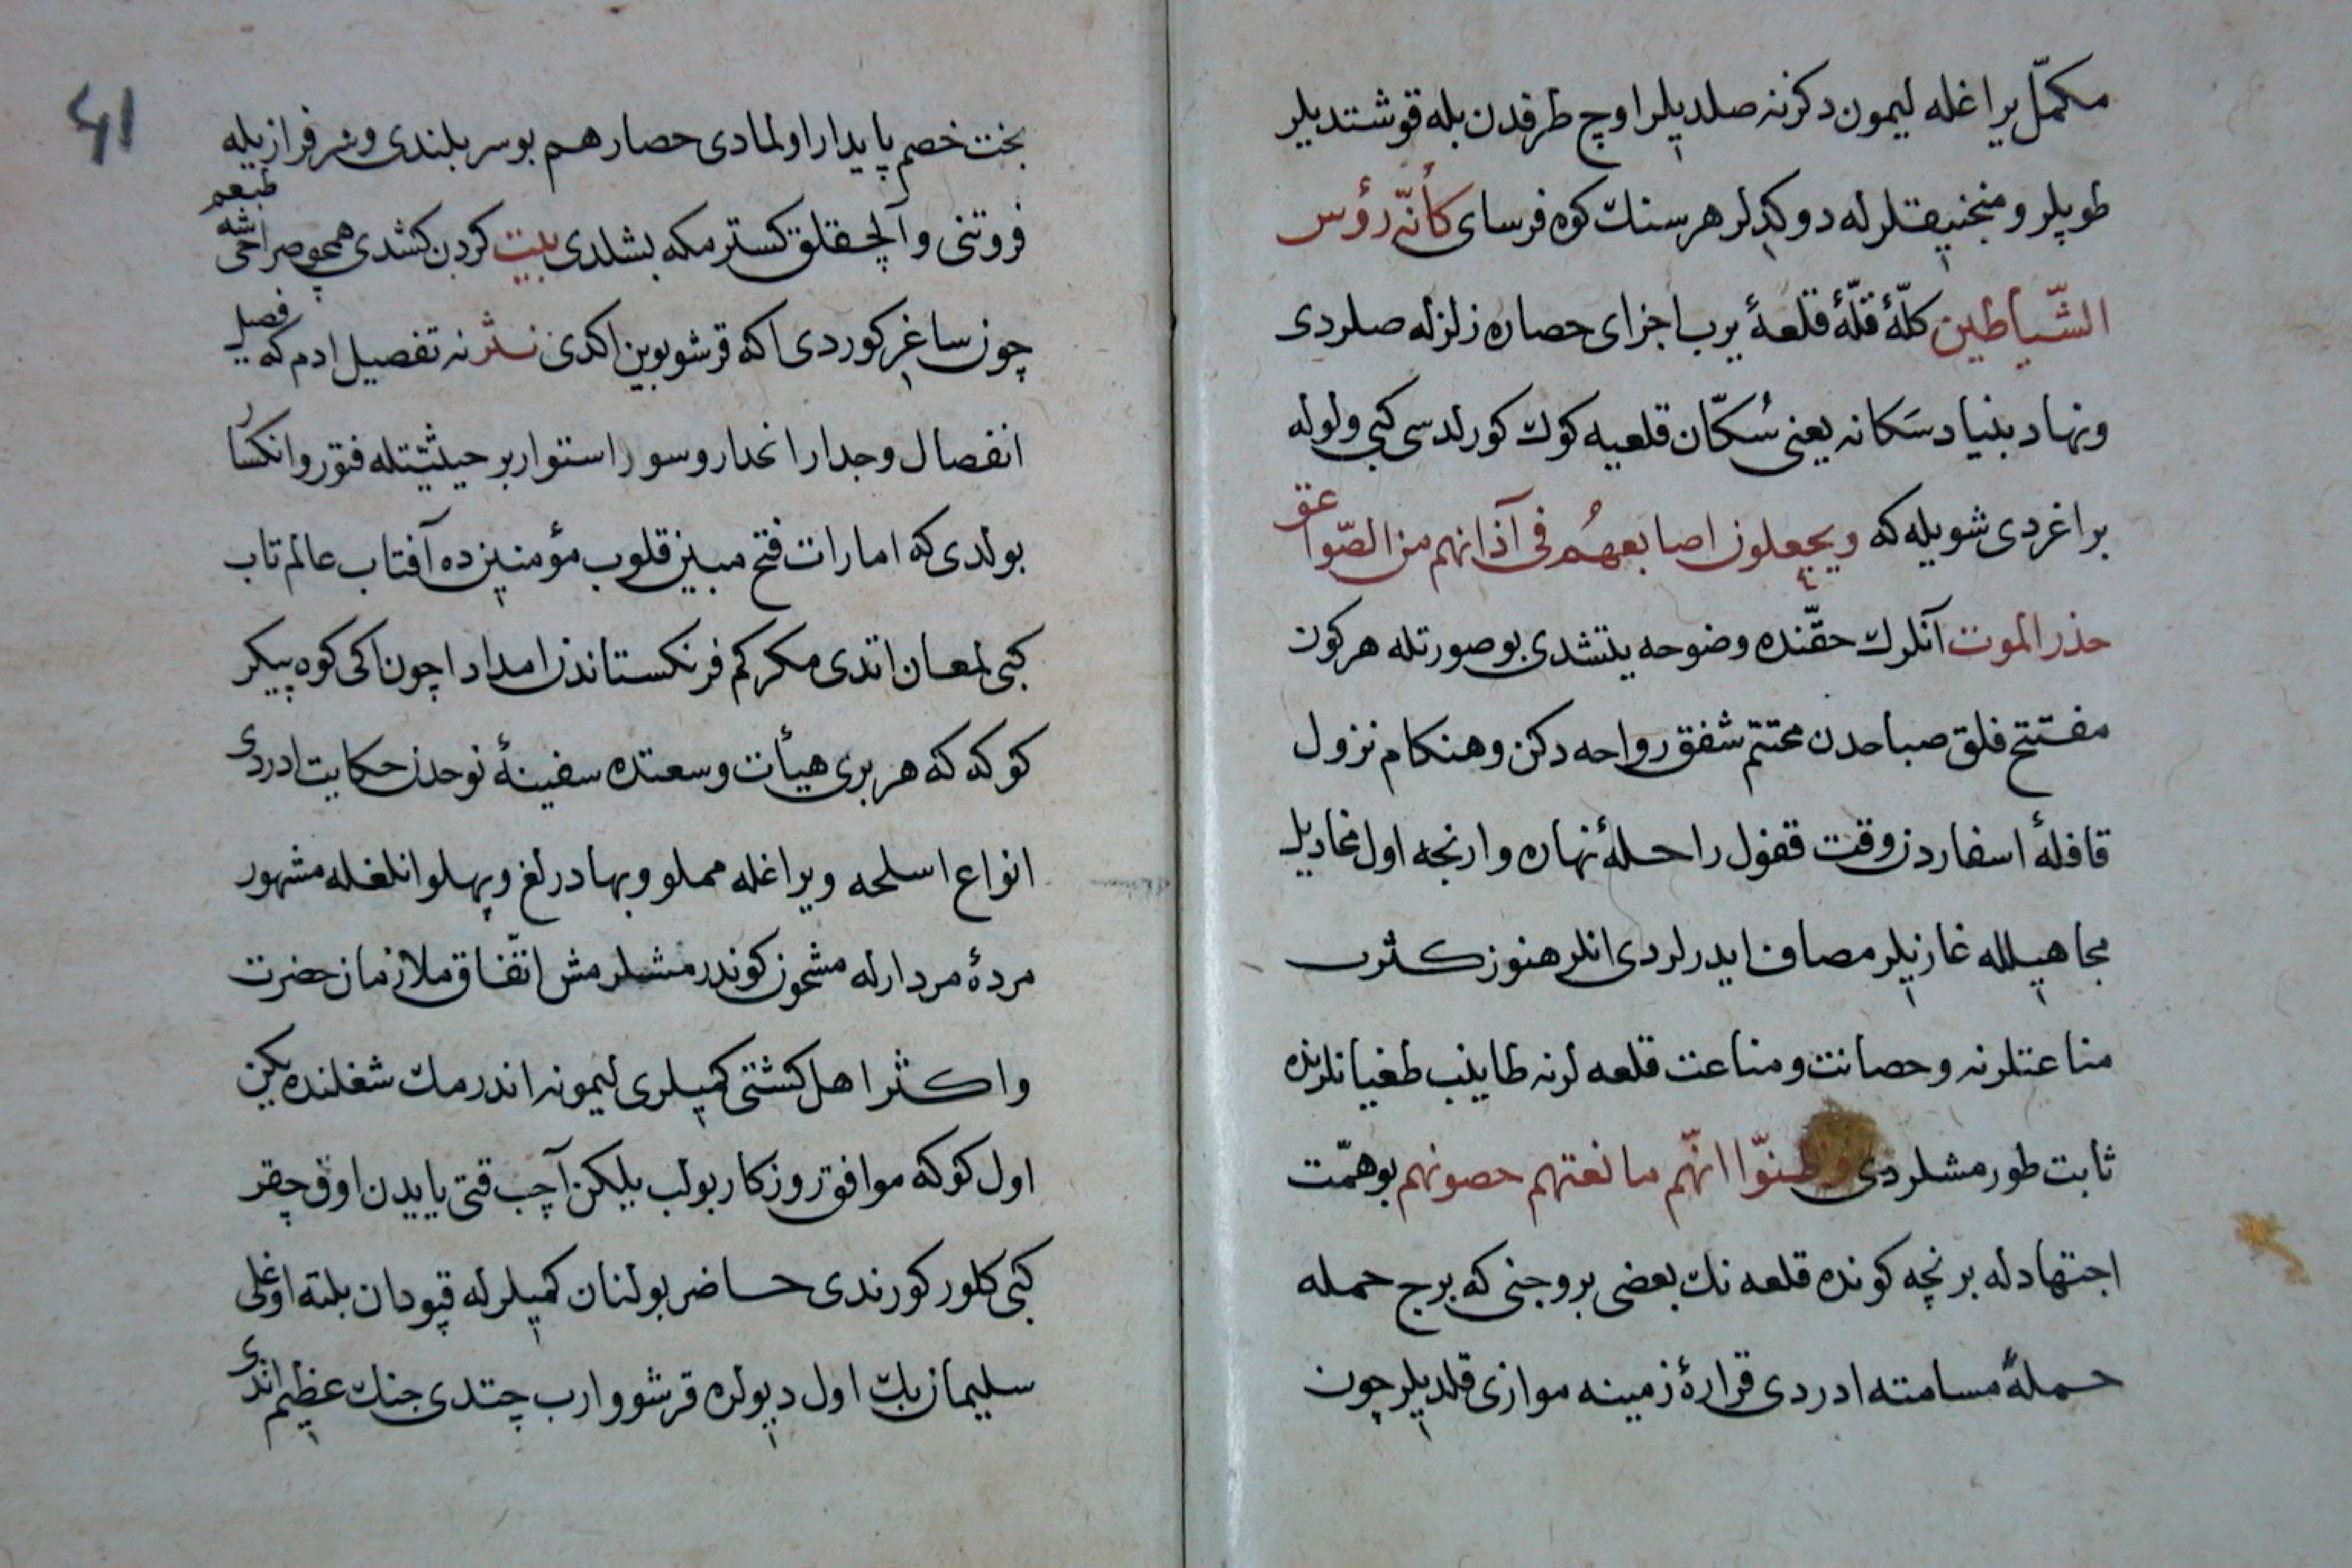 مكمّل يراغله ليمون دكزنه صلديلر اوچ طرفدن بله قوشتديلر
طوپلر و منجنيقلرله دوكديلر هر سنك كوه فرساى كأنّه رؤس
الشّياطين كلّهٔ قلّهٔ قلعهٔ يرب اجزاى حصاره زلزله صلردى
و نهاد بنياد سَكانه يعنى سُكّان قلعيه كوك كورلدسى كبى ولوله
براغردى شويله كه ويجعلون اصابعهُم فى آذانهم من الصّواعق
حذر الموت آنلرك حقّنده وضوحه يتشدى بو صورتله هر كون
مفتتح فلق صباحدن مختتم شفق رواحه دكن و هنكام نزول
قافلهٔ اسفاردن وقت قفول راحلهٔ نهاره وارنجه اول مخاديل
مجاهيلله غازيلر مصاف ايدرلردى انلر هنوز كثرت
مناعتلرنه و حصانت و مناعت قلعه لرنه طاينب طغيانلرنده
ثابت طورمشلردى وظنّوا انّهم مانعتهم حصونهم بو همّت
اجتهادله بر نچه كونده قلعه نك بعضى بروجنى كه برج حمله
حملهٔ مسامته ادردى قرارهٔ زمينه موازى قلديلر چون
41
بخت خصم پايدار اولمادى حصار هم بو سربلندى و سرفراز يله
فروتنى و آلچقلق كسترمكه بشلدى بيت كردن كشدى همچو صراحى شه طبعم
چون ساغر كوردى اكه قرشو بوين اكدى نثر نه تفصيل ادم كه فصيل
انفصال و جدار انحدار و سور استوار بر حيثيتله فتور و انكسار
بولدى كه امارات فتح مبين قلوب مؤمنينده آفتاب عالم تاب
كبى لمعان اتدى مكر كم فرنكستاندن امداد اچون اكى كوه پيكر
كوكه كه هر برى هيأت و وسعتده سفينهٔ نوحدن حكايت ادردى
انواع اسلحه و يراغله مملو و بهادرلغ و پهلوانلغله مشهور
مردهٔ مردارله مشحون كوندرمشلرمش اتّفاق ملازمان حضرت
و اكثر اهل كشتى كميلرى ليمونه اندرمك شغلنده يكن
اول كوكه موافق روزكار بولب يلكن آچب قتى يايدن اوق چقر
كبى كلور كورندى حاضر بولنان كميلرله قپودان بلته اوغلى
سليمان بك اول ديولره قرشو وارب چتدى جنك عظيم اتدى